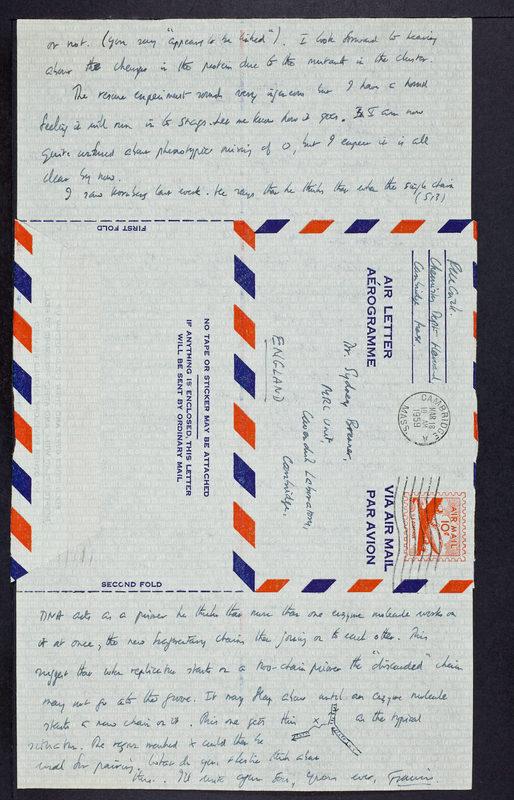 or not. (you say "appears to be linked"). I look forward to hearing
about the changes in the protein due to the mutant in the cluster.
The rescue experiment sounds very ingenious but I have a horrid
feeling it will run into snags. Let me know how it goes. I am now
quite confused about phenotypic mixing of O, but I expect it is all
clear by now.
I saw Kornberg last week. He says that he thinks that when the single chain
(S13)
FIRST FOLD
NO TAPE OR STICKER MAY BE ATTACHED
IF ANYTHING IS ENCLOSED, THIS LETTER
WILL BE SENT BY ORDINARY MAIL
AIR LETTER
AÉROGRAMME
VIA AIR MAIL
PAR AVION
Chemistry Dept Harvard
Cambridge Mass.
CAMBRIDGE
MAR 18
1959
MASS.
AIR MAIL
10¢
Dr. Sydney Brenner,
MRC Unit,
Cavendish Laboratory,
Cambridge,
ENGLAND
SECOND FOLD
DNA acts as a primer he thinks that more than one enzyme molecule works on
it at once, the new fragmentary chains then joining on to each other. This
suggests that when replication starts on a two-chain primer the "discarded" chain
may not go into the groove. It may flap about until an enzyme molecule
starts a new chain on it. Thus one gets this x as the typical
situation. The region marked x could then be
used for pairing. What do you & Leslie think about
this. I'll write again soon, Yours ever, Francis.